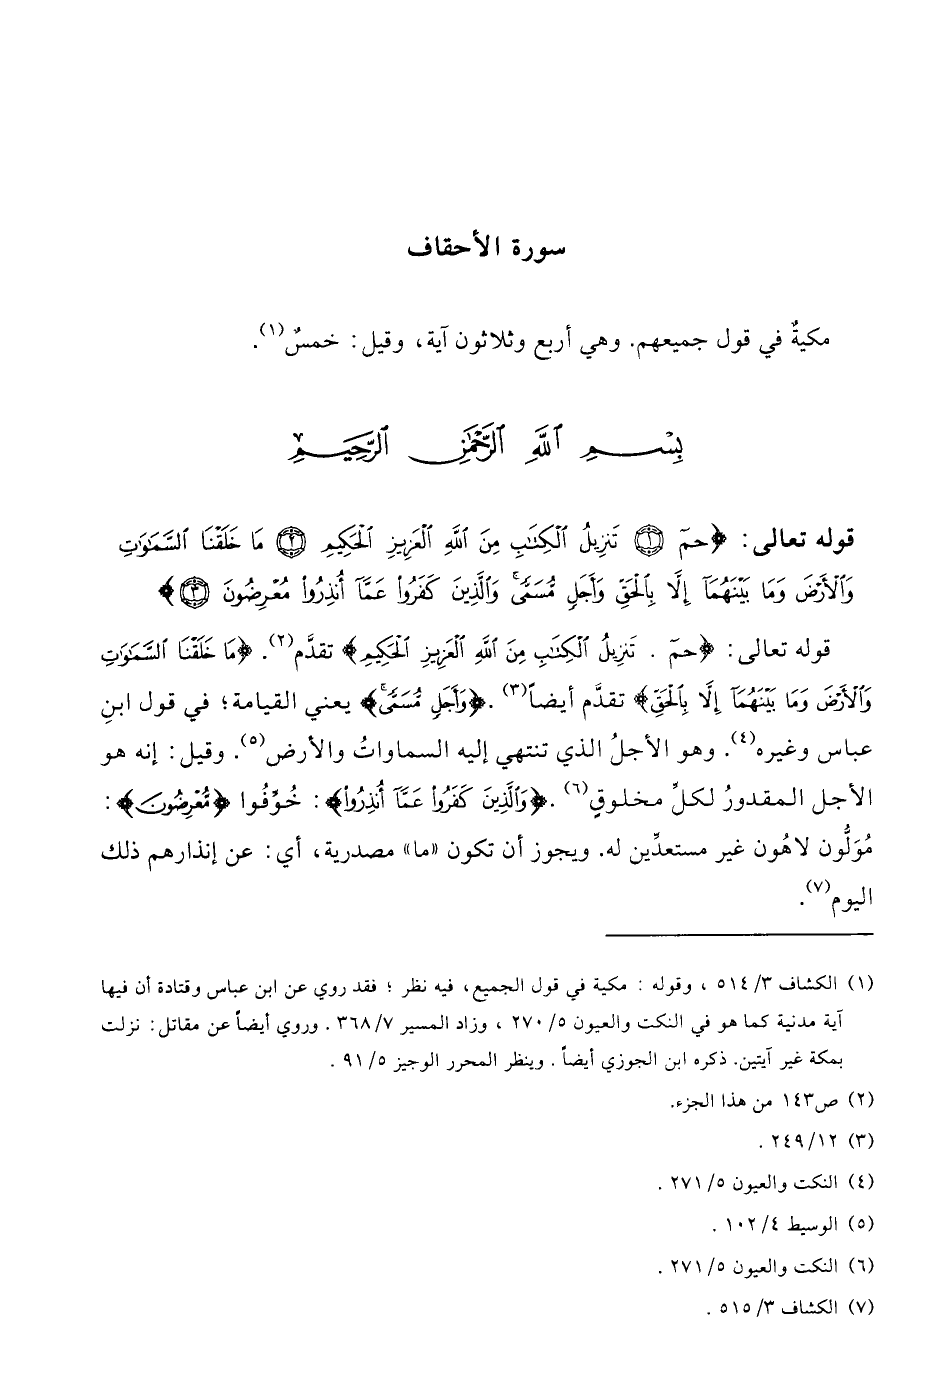 سورة الأحقاف
مكيةٌ في قول جميعهم. وهي أربع وثلاثون آية، وقيل: خمسٌ(١).
بِسْمِ ٱللَّهِ ٱلرَّحْمَٰنِ ٱلرَّحِيمِ
قوله تعالى: ﴿حمٓ ۝١ تَنزِيلُ ٱلْكِتَٰبِ مِنَ ٱللَّهِ ٱلْعَزِيزِ ٱلْحَكِيمِ ۝٢ مَا خَلَقْنَا ٱلسَّمَٰوَٰتِ
وَٱلْأَرْضَ وَمَا بَيْنَهُمَآ إِلَّا بِٱلْحَقِّ وَأَجَلٍ مُّسَمًّىۚ وَٱلَّذِينَ كَفَرُوا۟ عَمَّآ أُنذِرُوا۟ مُعْرِضُونَ ۝٣﴾
قوله تعالى: ﴿حمٓ . تَنزِيلُ ٱلْكِتَٰبِ مِنَ ٱللَّهِ ٱلْعَزِيزِ ٱلْحَكِيمِ﴾ تقدَّم(٢). ﴿مَا خَلَقْنَا ٱلسَّمَٰوَٰتِ
وَٱلْأَرْضَ وَمَا بَيْنَهُمَآ إِلَّا بِٱلْحَقِّ﴾ تقدَّم أيضاً(٣). ﴿وَأَجَلٍ مُّسَمًّىۚ﴾ يعني القيامة؛ في قول ابنِ
عباس وغيره(٤). وهو الأجلُ الذي تنتهي إليه السماواتُ والأرض(٥). وقيل: إنه هو
الأجل المقدورُ لكلِّ مخلوقٍ(٦). ﴿وَٱلَّذِينَ كَفَرُوا۟ عَمَّآ أُنذِرُوا۟﴾: خُوِّفُوا ﴿مُعْرِضُونَ﴾:
مُوَلُّون لاهُون غير مستعدِّين له. ويجوز أن تكون «ما» مصدرية، أي: عن إنذارهم ذلك
اليوم(٧).
(١) الكشاف ٣/ ٥١٤ ، وقوله : مكية في قول الجميع، فيه نظر ؛ فقد روي عن ابن عباس وقتادة أن فيها
آية مدنية كما هو في النكت والعيون ٥/ ٢٧٠ ، وزاد المسير ٧/ ٣٦٨ . وروي أيضاً عن مقاتل: نزلت
بمكة غير آيتين. ذكره ابن الجوزي أيضاً . وينظر المحرر الوجيز ٥/ ٩١ .
(٢) ص١٤٣ من هذا الجزء.
(٣) ١٢/ ٢٤٩ .
(٤) النكت والعيون ٥/ ٢٧١ .
(٥) الوسيط ٤/ ١٠٢ .
(٦) النكت والعيون ٥/ ٢٧١ .
(٧) الكشاف ٣/ ٥١٥ .